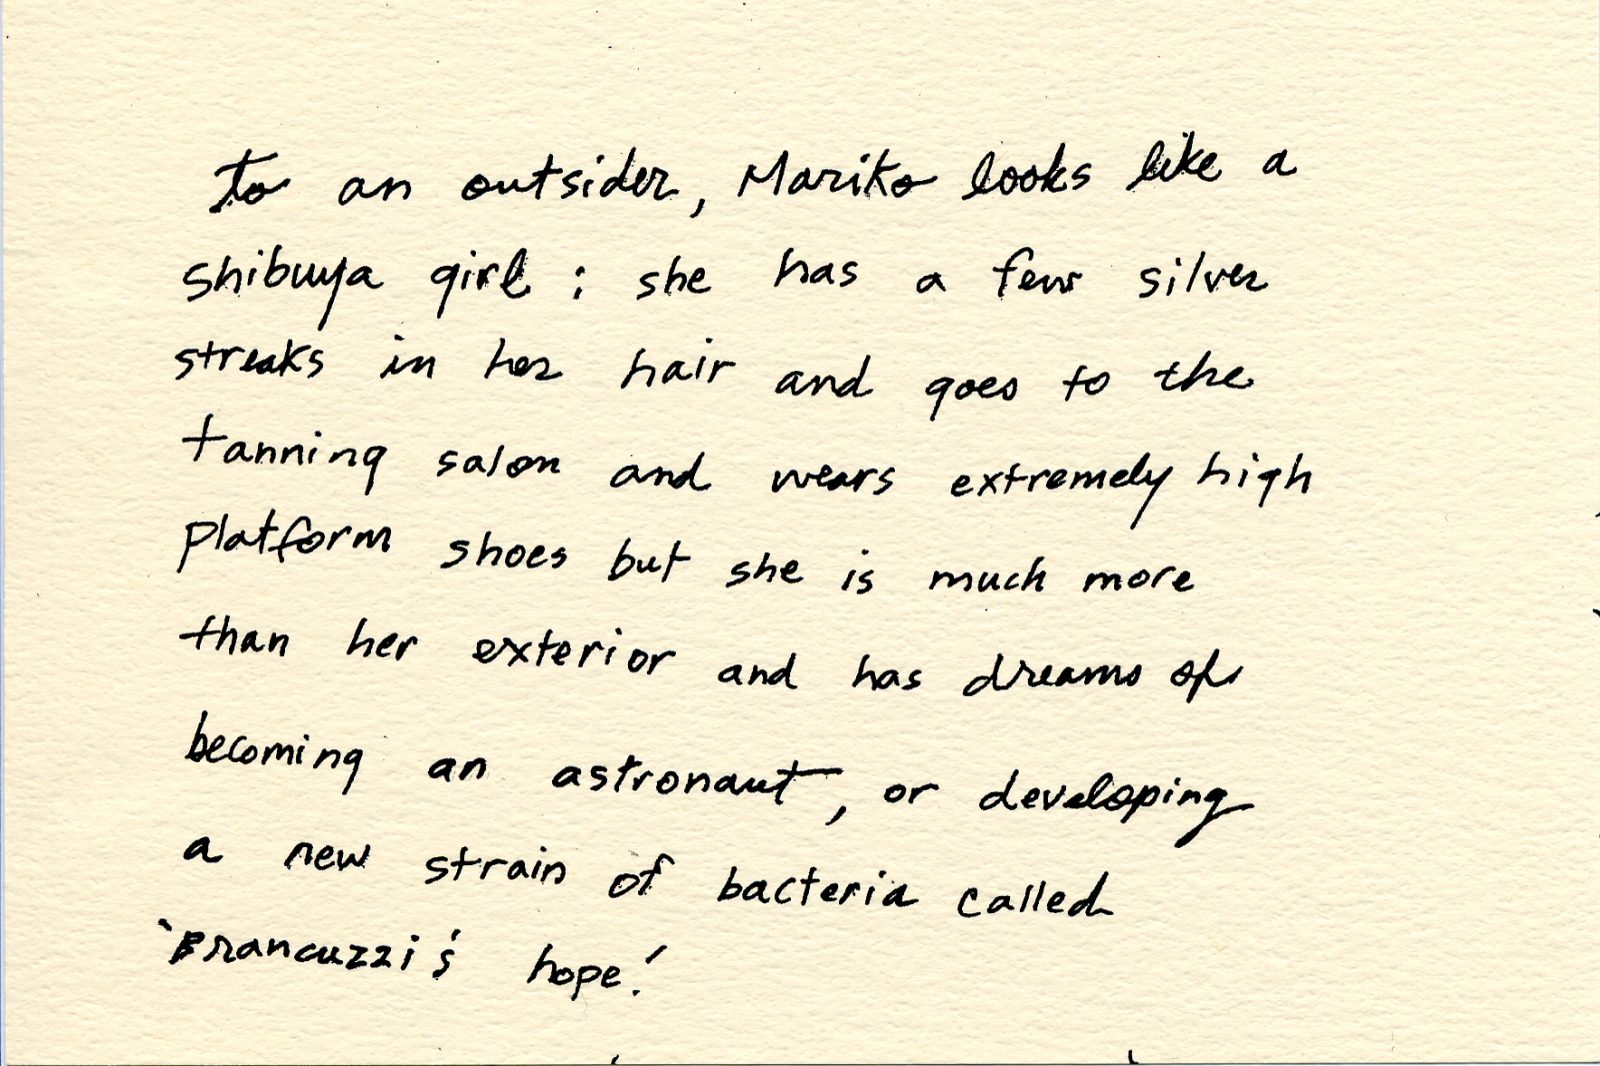 To an outsider, Mariko looks like a
shibuya girl: she has a few silver
streaks in her hair and goes to the
tanning salon and wears extremely high
platform shoes but she is much more
than her exterior and has dreams of
becoming an astronaut, or developing
a new strain of bacteria called
'Brancuzzi's hope.'